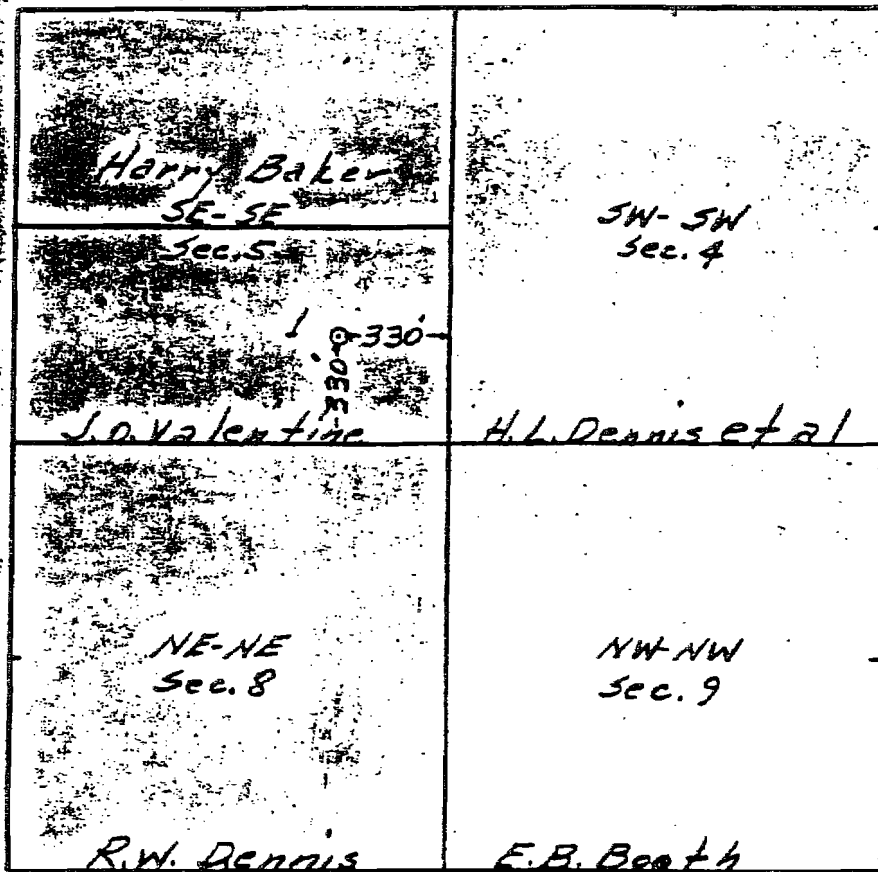 Harry Baker
SE-SE
Sec. 5
1
330'
330'
J.O. Valentine
SW-SW
Sec. 4
H.L. Dennis et al
NE-NE
Sec. 8
R.W. Dennis
NW-NW
Sec. 9
E.B. Booth